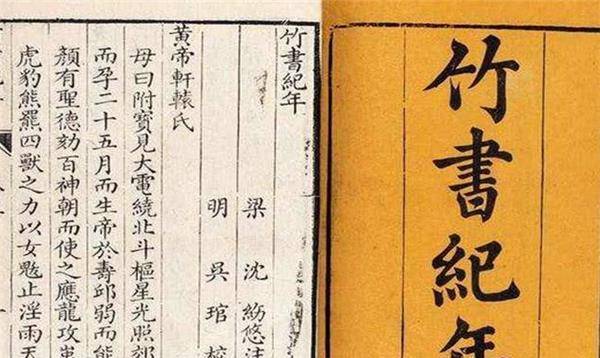 竹書紀年
竹書紀年
梁 沈 注
明 吳 琯 校
黃帝軒轅氏
母曰附寶見大電繞北斗樞星光照郊
而孕二十五月而生帝於壽邱弱而能
顏有聖德劾百神朝而使之應龍攻蚩
虎豹熊羆四獸之力以女魃止淫雨天